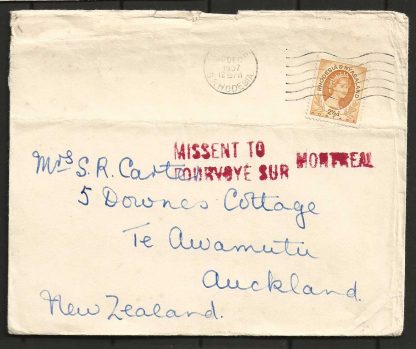 1957
RHODESIA
RHODESIA & NYASALAND
MISSENT TO
FOURVOYE SUR MONTREAL
Mrs S. R. Carter
5 Downes Cottage
Te Awamutu
Auckland.
New Zealand.